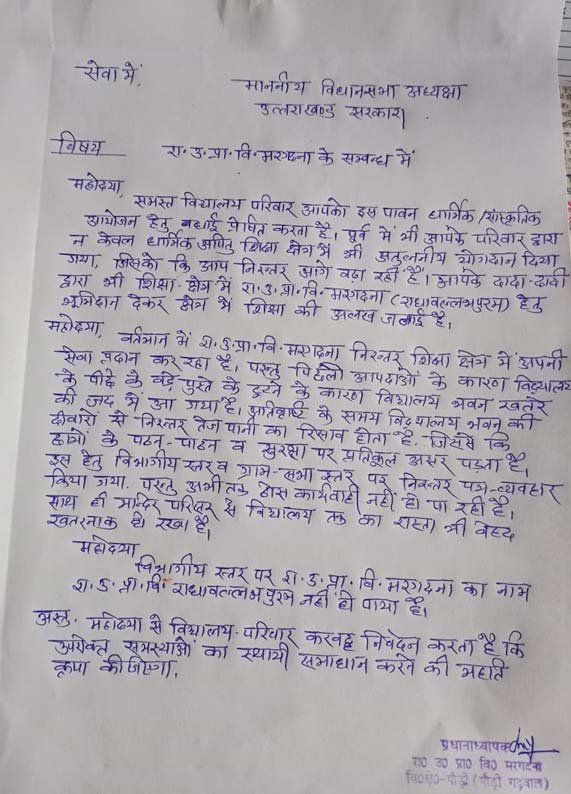 सेवा में,
माननीय विधानसभा अध्यक्षा
उत्तराखण्ड सरकार।
विषय रा.उ.प्रा.वि. मरगदना के सम्बन्ध में
महोदया,
समस्त विद्यालय परिवार आपको इस पावन धार्मिक/सांस्कृतिक
आयोजन हेतु बधाई प्रेषित करता है। पूर्व में भी आपके परिवार द्वारा
न केवल धार्मिक अपितु शिक्षा क्षेत्र में भी अतुलनीय योगदान दिया
गया, जिसको कि आप निरन्तर आगे बढ़ा रही है। आपके दादा-दादी
द्वारा भी शिक्षा-क्षेत्र में रा.उ.प्रा.वि. मरगदना (राधावल्लभपुरम) हेतु
भूमिदान देकर क्षेत्र में शिक्षा की अलख जलाई है।
महोदया, वर्तमान में रा.उ.प्रा.वि. मरगदना निरन्तर शिक्षा क्षेत्र में अपनी
सेवा प्रदान कर रहा है, परन्तु पिछली आपदाओं के कारण विद्यालय
के पीछे के बड़े पुस्ते के टूटने के कारण विद्यालय भवन खतरे
की जद में आ गया है। अतिवृष्टि के समय विद्यालय भवन की
दीवारों से निरन्तर तेज पानी का रिसाव होता है. जिससे कि
छात्रों के पठन-पाठन व सुरक्षा पर प्रतिकूल असर पड़ता है।
इस हेतु विभागीय स्तर व ग्राम-सभा स्तर पर निरन्तर पत्र-व्यवहार
किया गया. परन्तु अभी तक ठोस कार्यवाही नहीं हो पा रही है।
साथ ही मन्दिर परिसर से विद्यालय तक का रास्ता भी बेहद
खतरनाक हो रखा है।
महोदया
विभागीय स्तर पर रा.उ.प्रा.वि. मरगदना का नाम
रा.उ.प्रा.वि. राधावल्लभपुरम नहीं हो पाया है।
अस्तु. महोदया से विद्यालय-परिवार करबद्ध निवेदन करता है कि
उपरोक्त समस्याओं का स्थायी समाधान करने की महति
कृपा कीजिएगा.
प्रधानाध्यापक
रा० उ० प्रा० वि० मरगदना
वि०क्षे०-पौड़ी (पौड़ी गढ़वाल)